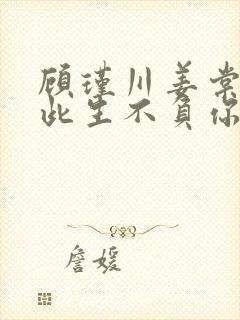 顾瑾川姜棠
此生不负你
詹媛